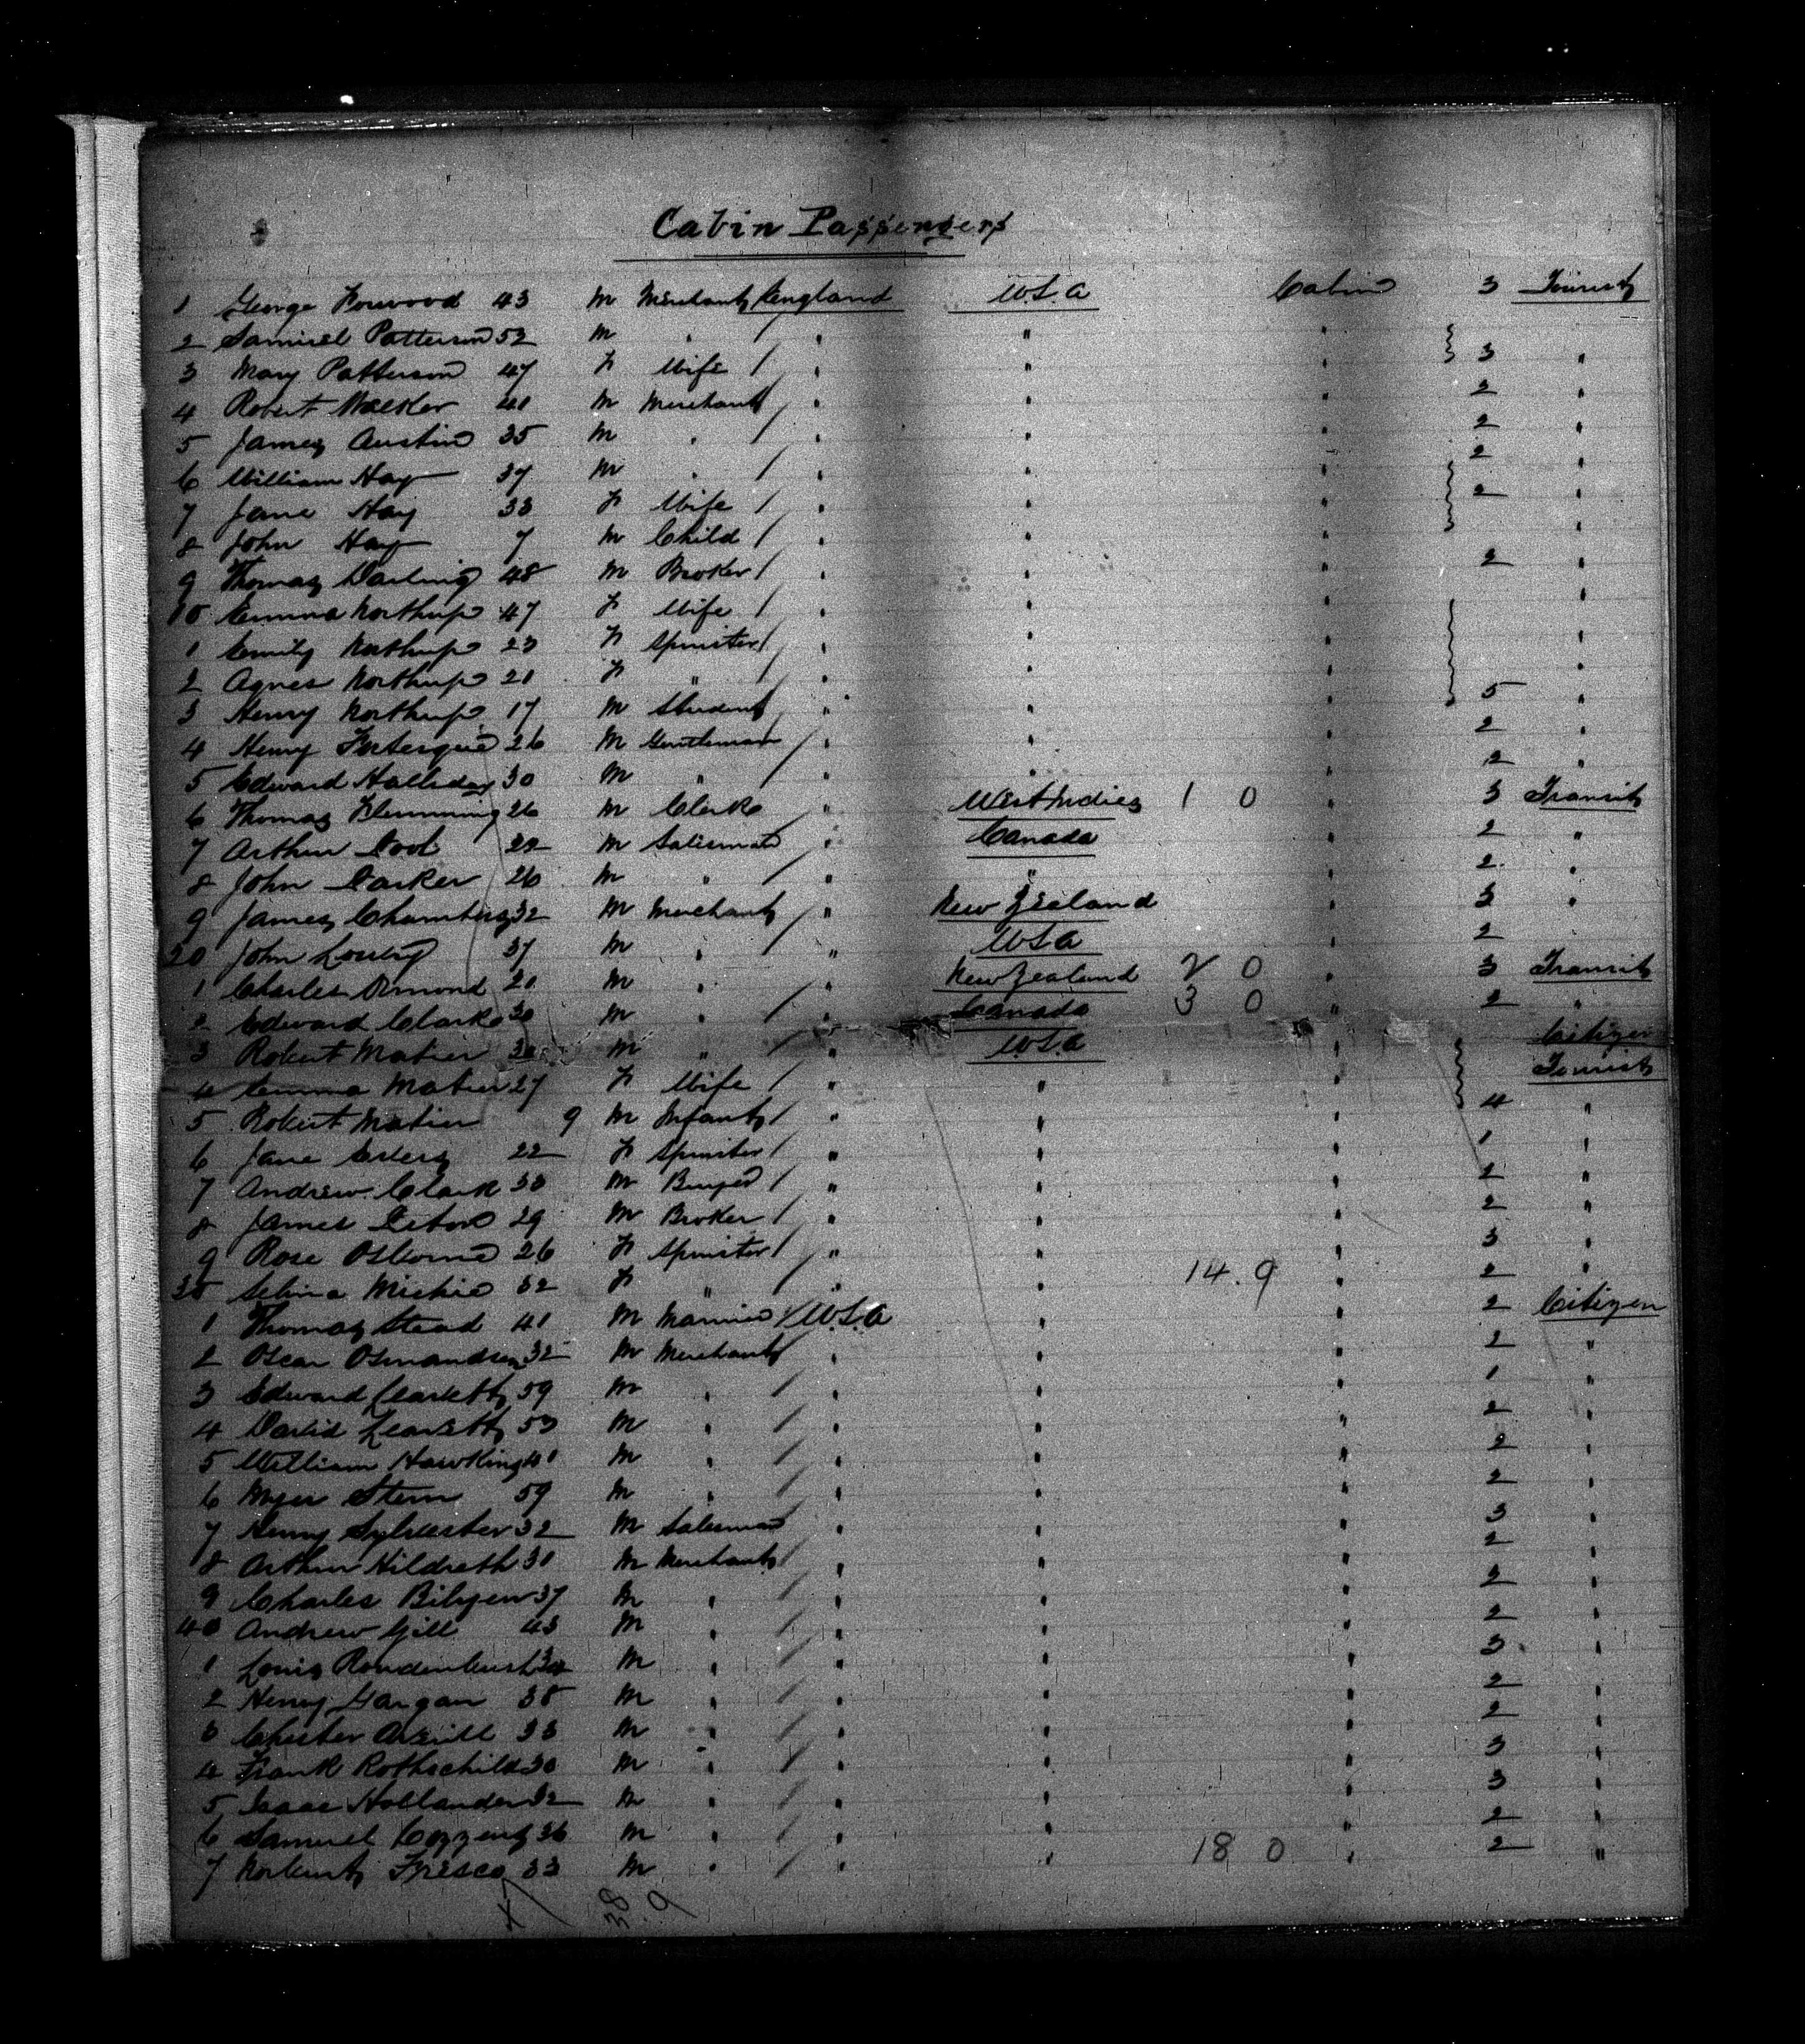 Cabin Passengers
1 George Forwood 43 M Merchant England U.S.A Cabin 3 Tourist
2 Samuel Patterson 52 M " " " "
3 Mary Patterson 47 F Wife " " " 3 "
4 Robert Walker 41 M Merchant " " " 2 "
5 James Austin 35 M " " " " 2 "
6 William Hay 37 M " " " " 2 "
7 Jane Hay 33 F Wife " " " 2 "
8 John Hay 7 M Child " " "
9 Thomas Darling 48 M Broker " " " 2 "
10 Emma Northup 47 F Wife " " " "
1 Emily Northup 23 F Spinster " " " "
2 Agnes Northup 21 F " " " " "
3 Henry Northup 17 M Student " " " 5 "
4 Henry Fortesque 26 M Gentleman " " " 2 "
5 Edward Halliday 30 M " " " " 2 "
6 Thomas Flemming 26 M Clerk " West Indies 1 0 " 3 Transit
7 Arthur 22 M Salesman " Canada " 2 "
8 John 26 M " " " 2 "
9 James Chambers 32 M Merchant " New Zealand " 3 "
20 John 37 M " " U.S.A " 2
1 Charles Ormond 21 M " " New Zealand 2 0 " 3 Transit
2 Edward Clark 30 M " " Canada 3 0 " 2 "
3 Robert Matier 30 M " " U.S.A " Citizen
4 Emma Matier 27 F Wife " " " Tourist
5 Robert Matier 9 M Infant " " " 4 "
6 Jane 22 F Spinster " " " 1 "
7 Andrew Clark 33 M " " " 2 "
8 James 29 M Broker " " " 2 "
9 Rose Osborne 26 F Spinster " " " 3 "
30 Selina Michie 32 F " " " 14.9 " 2 "
1 Thomas Stead 41 M U.S.A " " 2 Citizen
2 Oscar Osmandsen 32 M Merchant " " " 2 "
3 Edward 59 M " " " " 1 "
4 David Leavitt 53 M " " " " 2 "
5 William Hawkins 41 M " " " " 2 "
6 Myer Stern 59 M " " " " 2 "
7 Henry Sylvester 32 M Salesman " " " 3 "
8 Arthur Hildreth 31 M Merchant " " " 2 "
9 Charles 37 M " " " " 2 "
40 Andrew Gill 43 M " " " " 2 "
1 Louis M " " " " 3 "
2 Henry 38 M " " " " 2 "
3 Chester 33 M " " " " 2 "
4 Frank Rothschild 30 M " " " " 3 "
5 Isaac Hollander 32 M " " " " 3 "
6 Samuel Cozzens 36 M " " " " 2 "
7 Norbert Fresco 33 M " " " 18 0 " 2 "
47 38.9